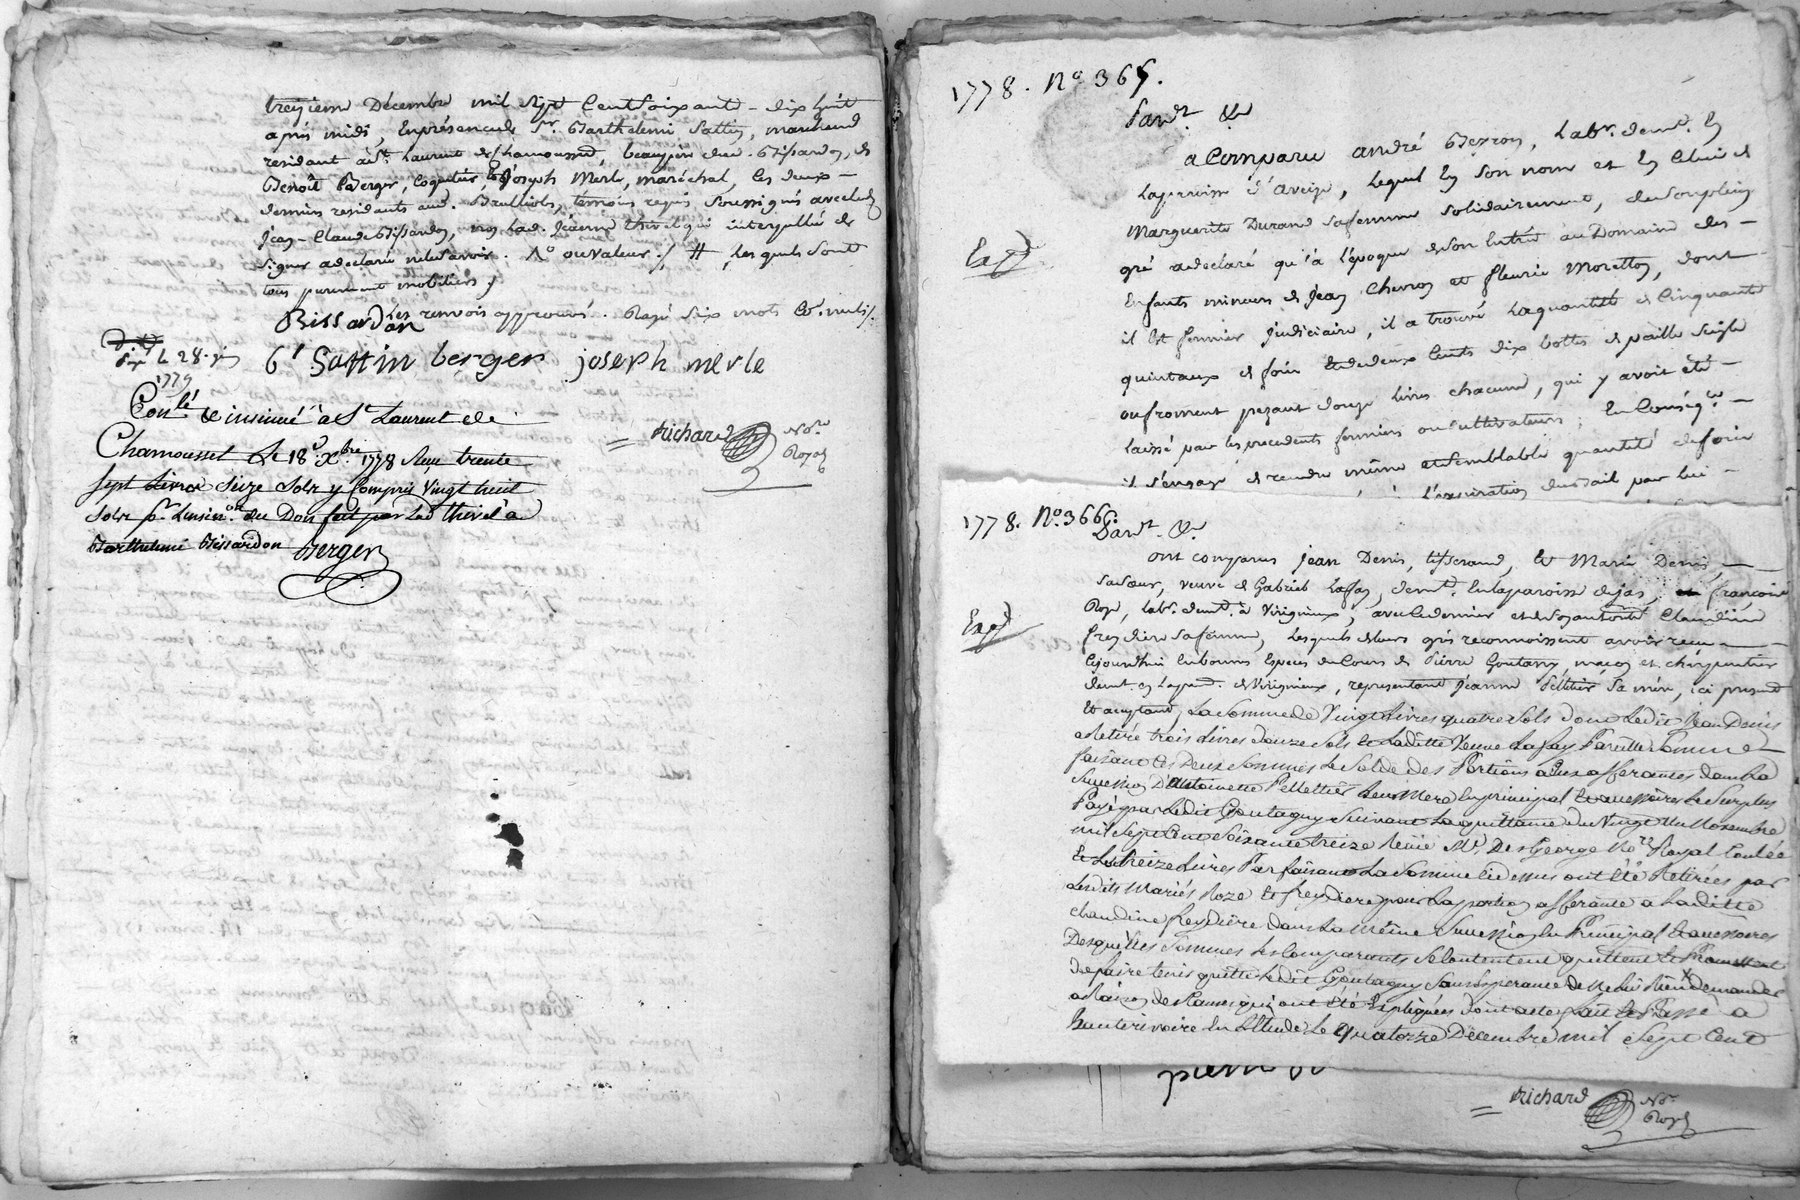 treizieme Décembre mil Sept Cent Soixante - dix huit
après midi, En présence de Sr. Barthelemi Sattin, marchand
residant à St. Laurent de Chamousset, beaupère dud. Bissardon, et
Benoît Berger, Joseph Merle, maréchal, les deux -
derniers residants aud. Brulliols, témoins requis Soussignés avec led.
Jean - Claude Bissardon, non lad. Jeanne Thivel qui interpellée de
Signer a declaré ne le Savoir. No ou valeur ./ # Lesquels Sont
tous purement mobiliers /
Les renvois approuvés. Rayé Six mots Co. nuls /.
Bissardon
Exp.é le 28. jin
1779
Sattin berger joseph merle
Conlé & insinué à St Laurent de
Chamousset Le 18e Xbre 1778 Reçu trente
Sept Livres Seize Sols y Compris Vingt huit
Sols pr. Linsinon. du Don fait par Lad Thivel a
Barthelmi Bissardon Berger
= Richard Nore
Royal
1778. No 365.
Pardt. &a
a Comparu andré Labr. demt. En
la paroisse d'aveize, Lequel En Son nom et En Celui de
Marguerite Durand Sa femme Solidairement, de Son plein
Exp.d
gré a declaré qu'à l'époque de Son Entrée au Domaine des -
Enfants mineurs de Jean Chevron et fleurie Moretton, dont
il Est fermier judiciaire, il a trouvé La quantité de Cinquante
quintaux de foin Et de deux Cents dix bottes de paille Seigle
ou froment pezant douze Livres chacune, qui y avoit été -
Laissé par les précedents fermiers ou Cultivateurs En Conségce -
il S'engage de rendre même et Semblable quantité de foin
L'expiration du Bail par lui -
1778. No. 366.
Pardt. &a.
ont comparus jean Denis, tisserand, Et Marie Denis, -
Sa Sœur, veuve de Gabriel Lafay, demt. En la paroisse de jas, françois
Roze, Labr. demt. à Virigneux, avec Ce dernier et de Son autorité Claudine
Exp.d
freydiere Sa femme, Lesquels de leurs gré reconnoissent avoir reçu -
Cejourdhui En bonnes Especes du Cours de Pierre Goutagny, maçon et charpentier
demt. en La par. de Virigneux, representant Jeanne Pelletier Sa mère, ici present
Et acceptant, La Somme de Vingt Livres quatre Sols dont Ledit Jean Denis
a Retiré trois Livres douze Sols Et Laditte Veuve Lafay Pareille Somme
faisant Les Deux Sommes Le Solde des Portions a Eux afferantes dans La
Succession D'Antoinette Pellettier Leur Mere En principal Et accessoires Le Surplus
Payé par Ledit Goutagny Suivant La quittance du Vingt Un Novembre
mil Sept Cent Soixante treize Reçüe Me. Des George Nore. Royal Conlée
Et Les treize Livres Parfaisant La Somme Ci dessus ont Eté Retirées par
Lesdits Mariés Roze Et freydiere pour La portion afferante a Laditte
Claudine freydiere dans La même Succession En Principal Et accessoires
Desquelles Sommes Les Comparants Se Contentent quittent Et Promettent
de faire tenir quitte Ledit Goutagny Sans Esperance de Ne Lui Rien demander
a Raison des Causes qui ont Eté Expliquées dont acte fait Et Passé a
hauterivoire En L'Etude Le quatorze Décembre mil Sept Cent
= Richard Nore.
Royal